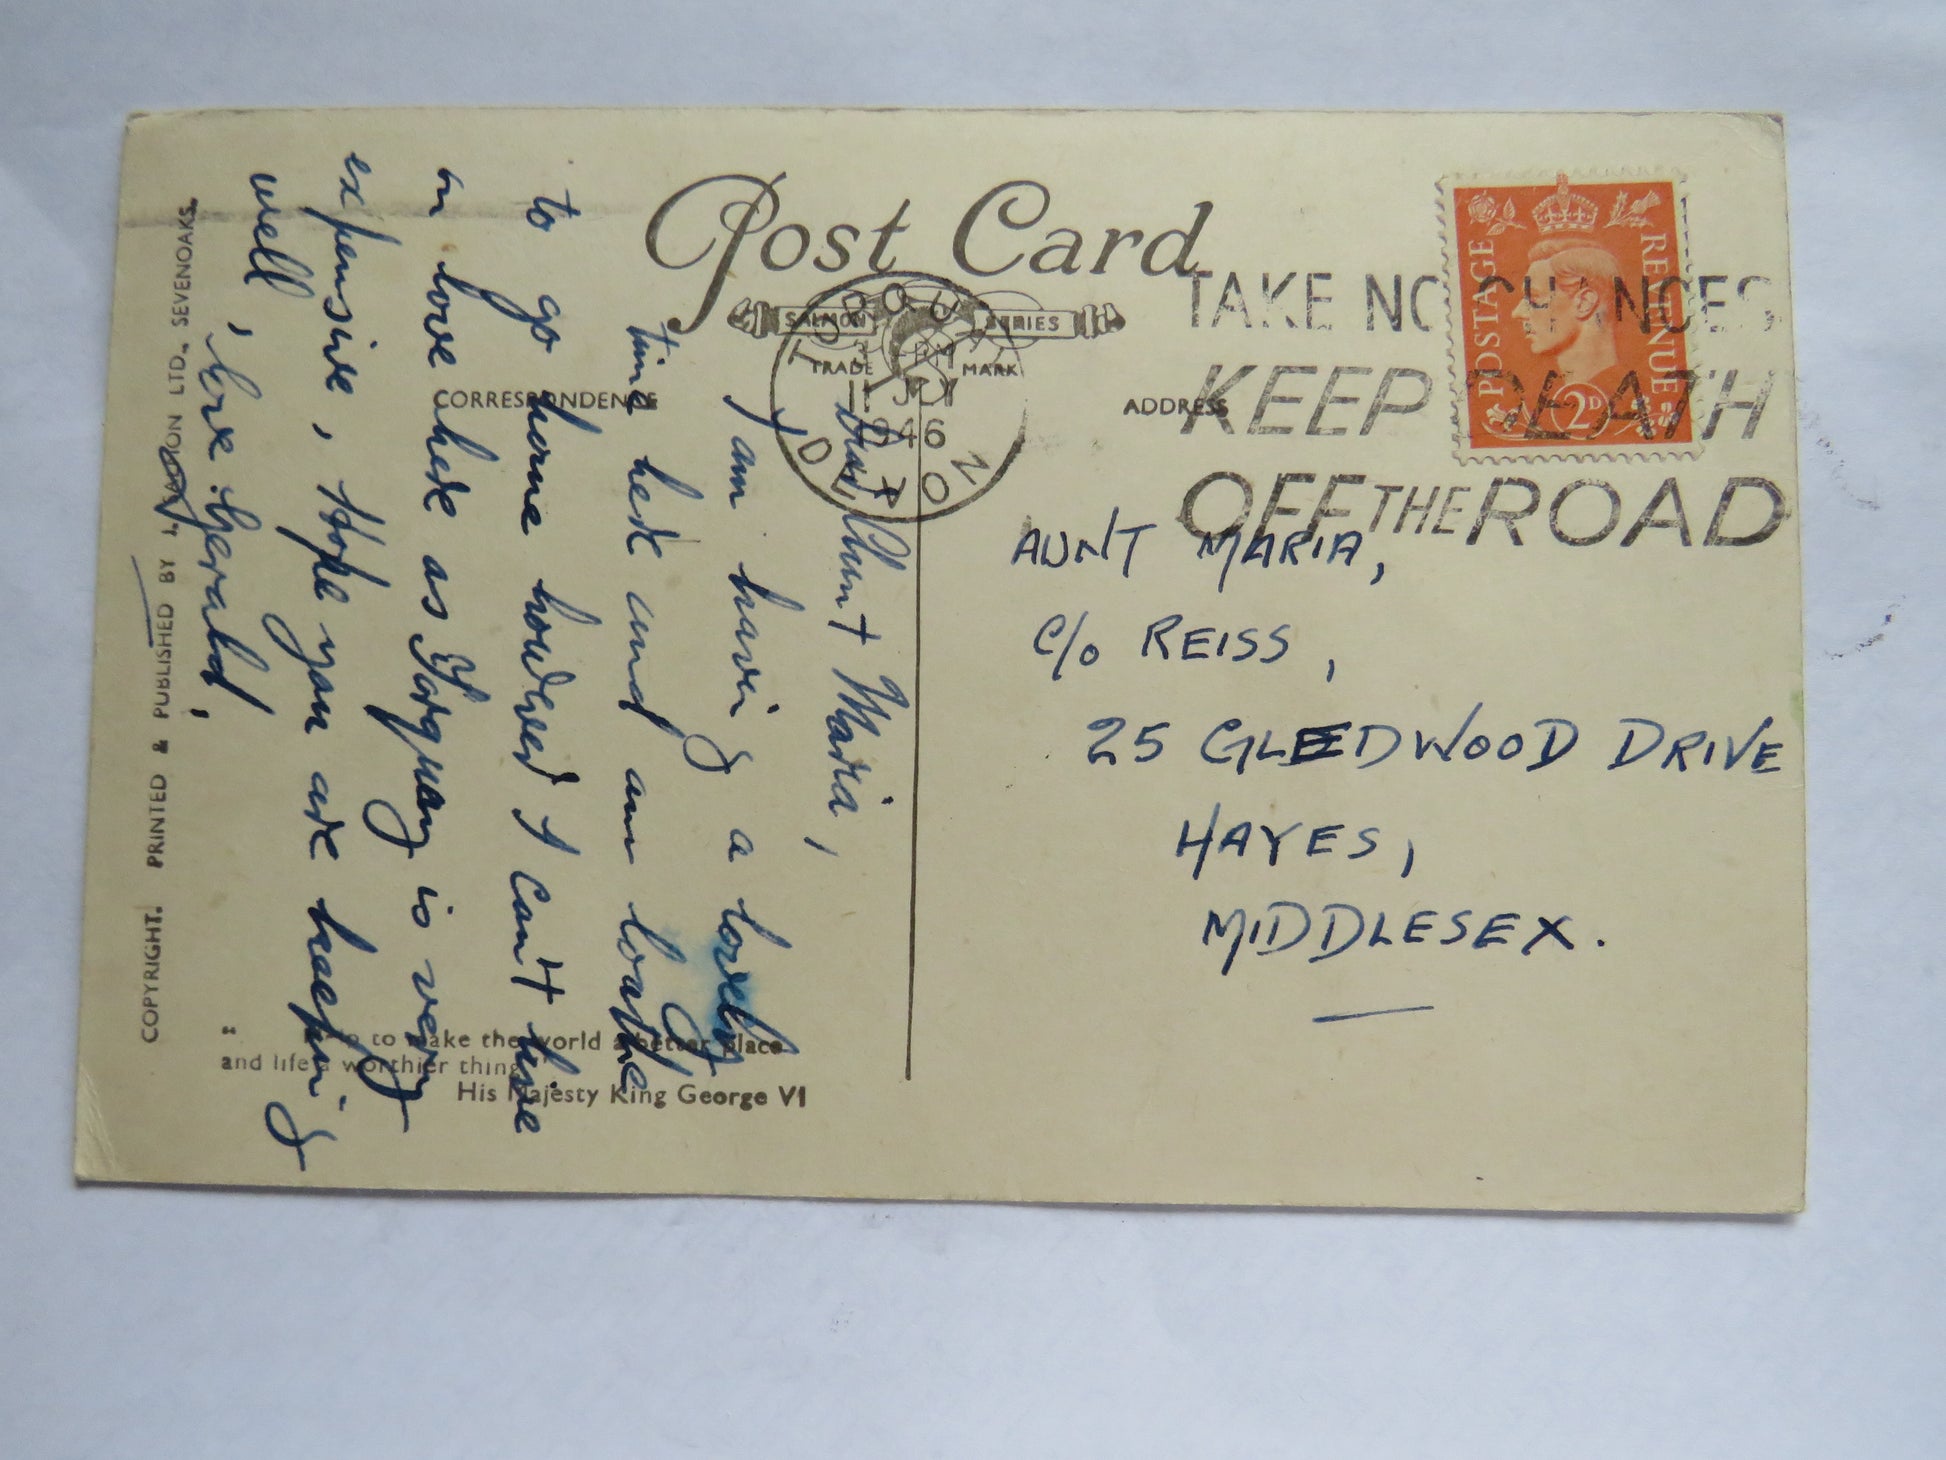 Post Card
SALMON SERIES
TRADE MARK
CORRESPONDENCE
ADDRESS
PM
1946
TAKE NO CHANCES
KEEP DEATH
OFF THE ROAD
POSTAGE REVENUE
2D
AUNT MARIA,
C/o REISS,
25 GLEDWOOD DRIVE
HAYES,
MIDDLESEX.
Dear Aunt Maria,
I am having a lovely
time here and am loathe
to go home however I can't live
on love here as Torquay is very
expensive, Hope you are keeping
well, love Gerald,
to make the world a better place
and life a worthier thing
His Majesty King George VI
COPYRIGHT. PRINTED & PUBLISHED BY J. SALMON LTD., SEVENOAKS.